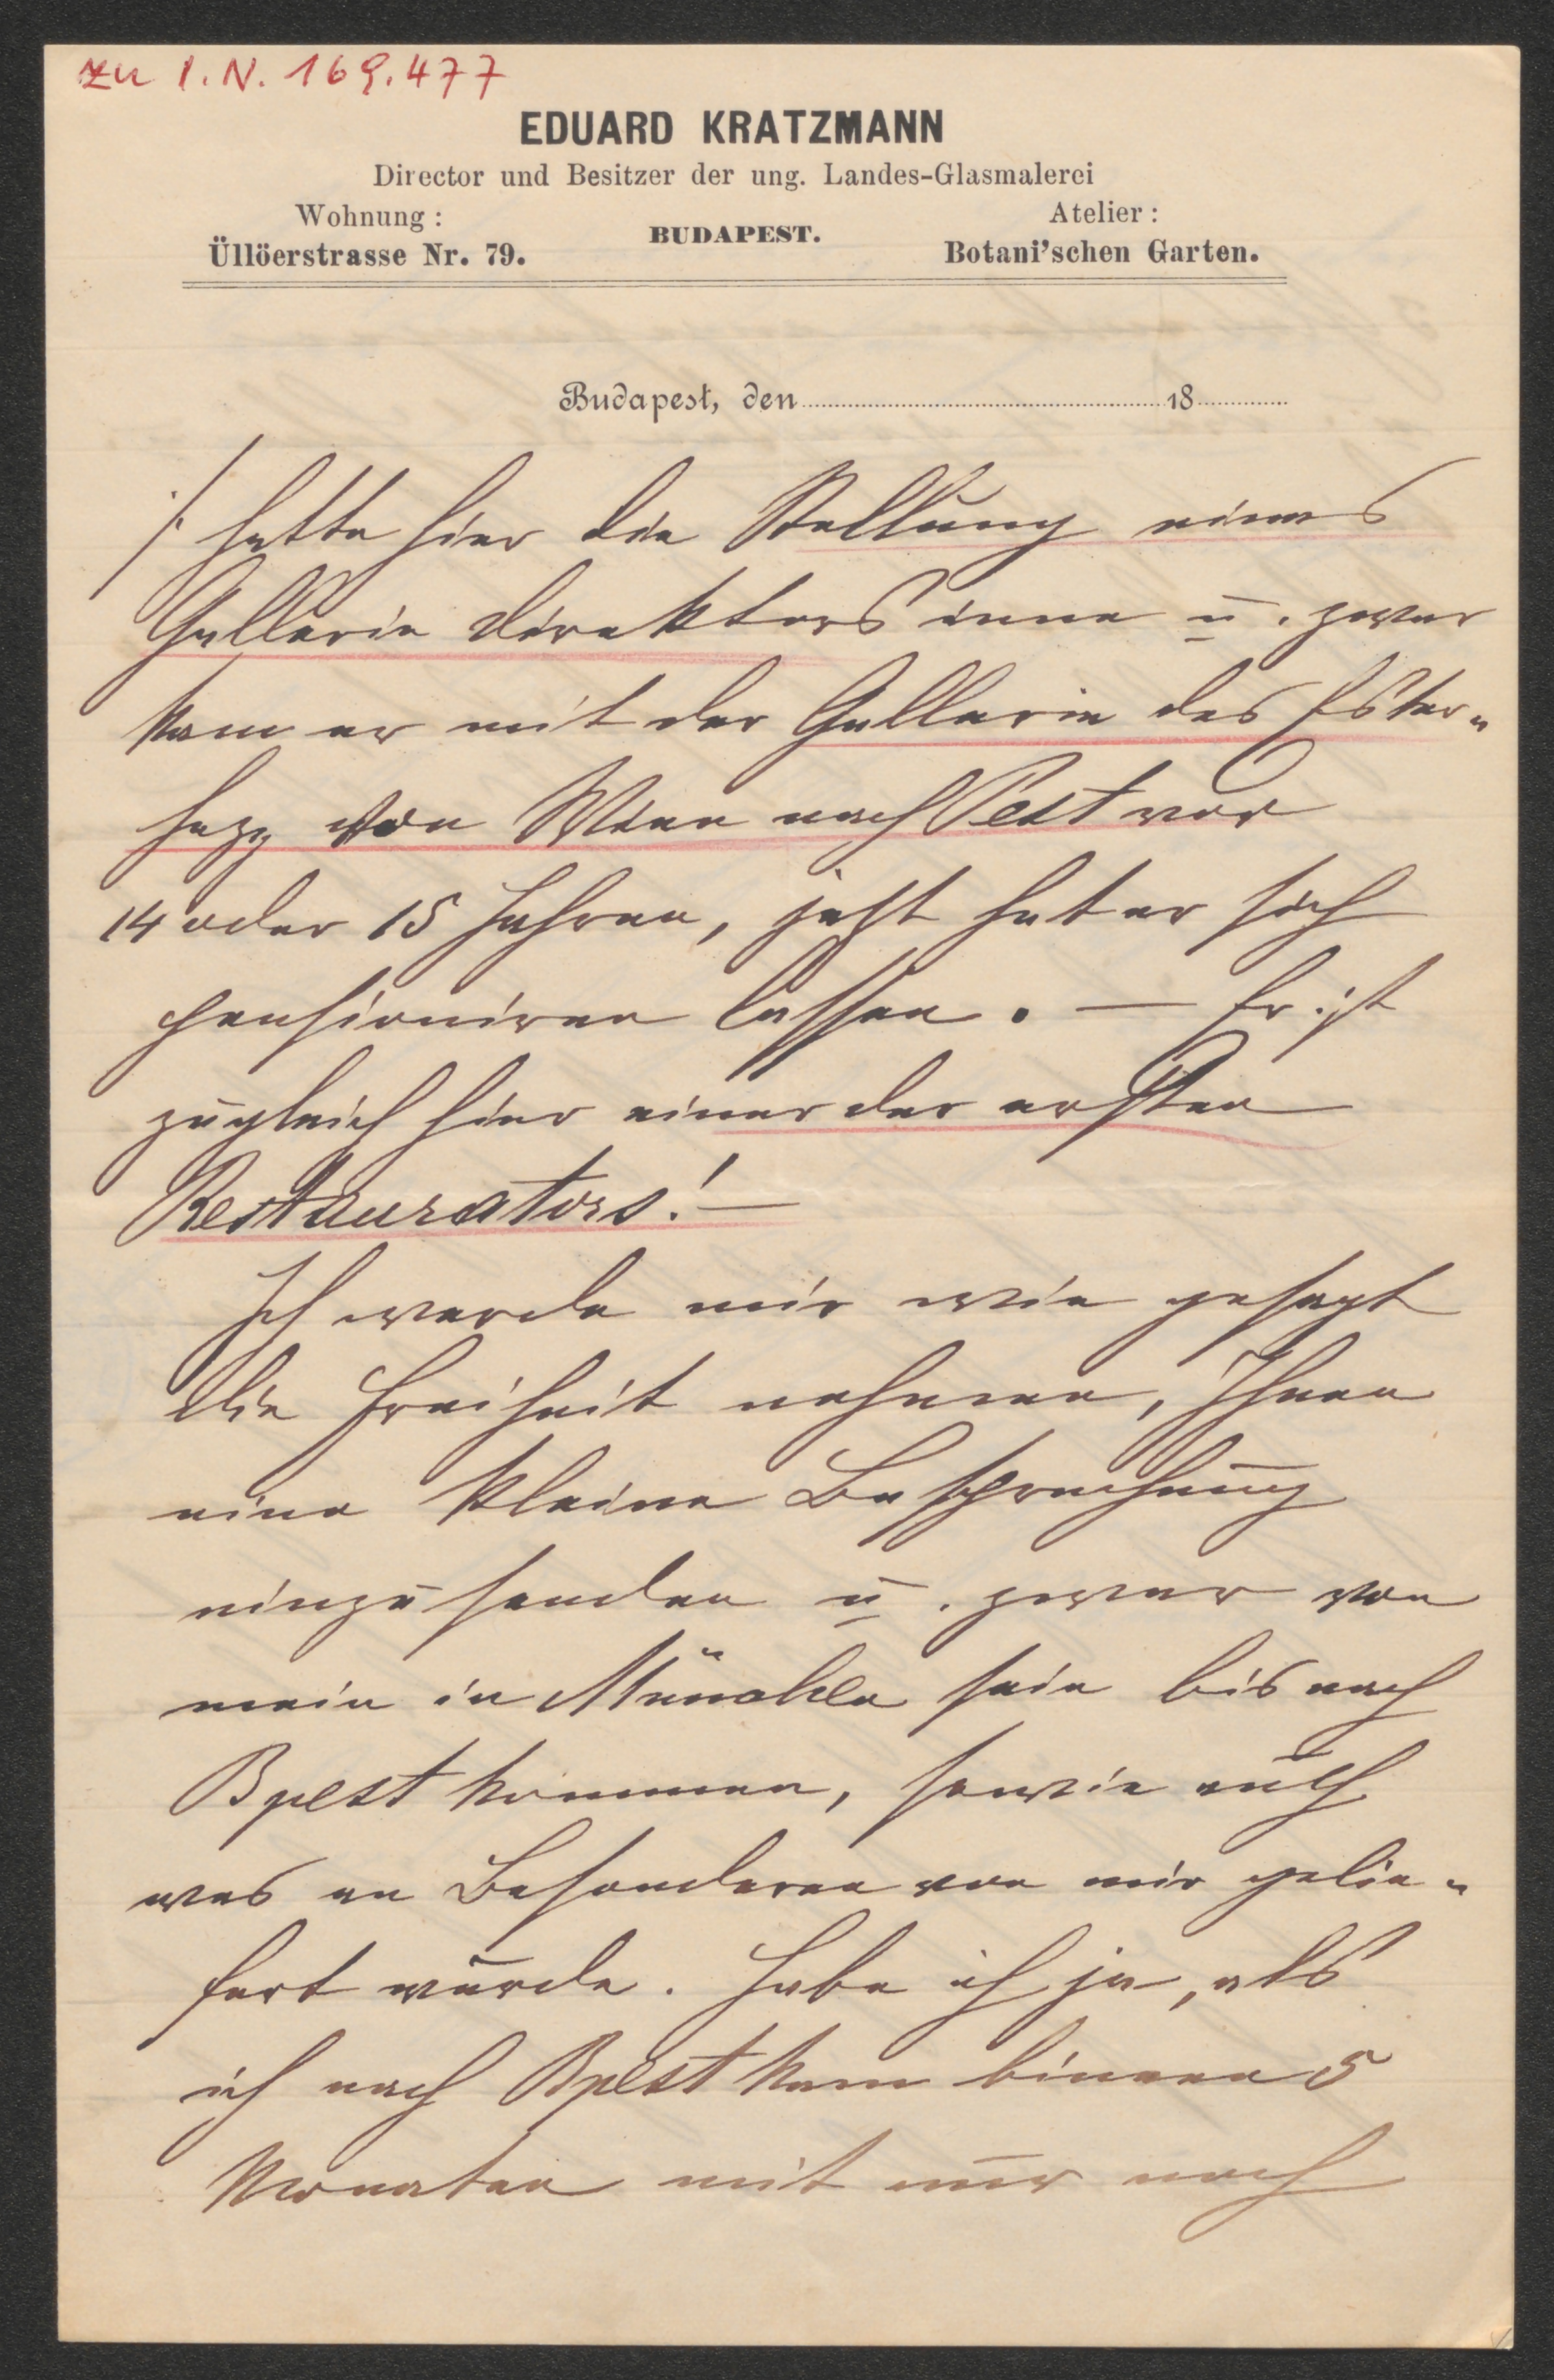 zu I.N. 169.477
EDUARD KRATZMANN
Director und Besitzer der ung. Landes-Glasmalerei
Wohnung :
Üllöerstrasse Nr. 79.
BUDAPEST.
Atelier :
Botani'schen Garten.
Budapest, den 18
/. hatte hier die Stellung eines
Gallerie Direktors inne u. zwar
kam er mit der Gallerie des Ester-
hazy von Wien nach Pest vor
14 oder 15 Jahren, jetzt hat er sich
pensioniren lassen. — Er ist
zugleich hier einer der ersten
Restaurators! —
Ich werde mir wie gesagt
die Freiheit nehmen, Ihnen
eine kleine Besprechung
einzusenden u. zwar von
mein in München sein bis nach
Bpest kommen, sowie auch
was an Besonderen von mir gelie-
fert wurde. Habe ich ja, als
ich nach Bpest kam binnen 5
Monaten mit nur noch